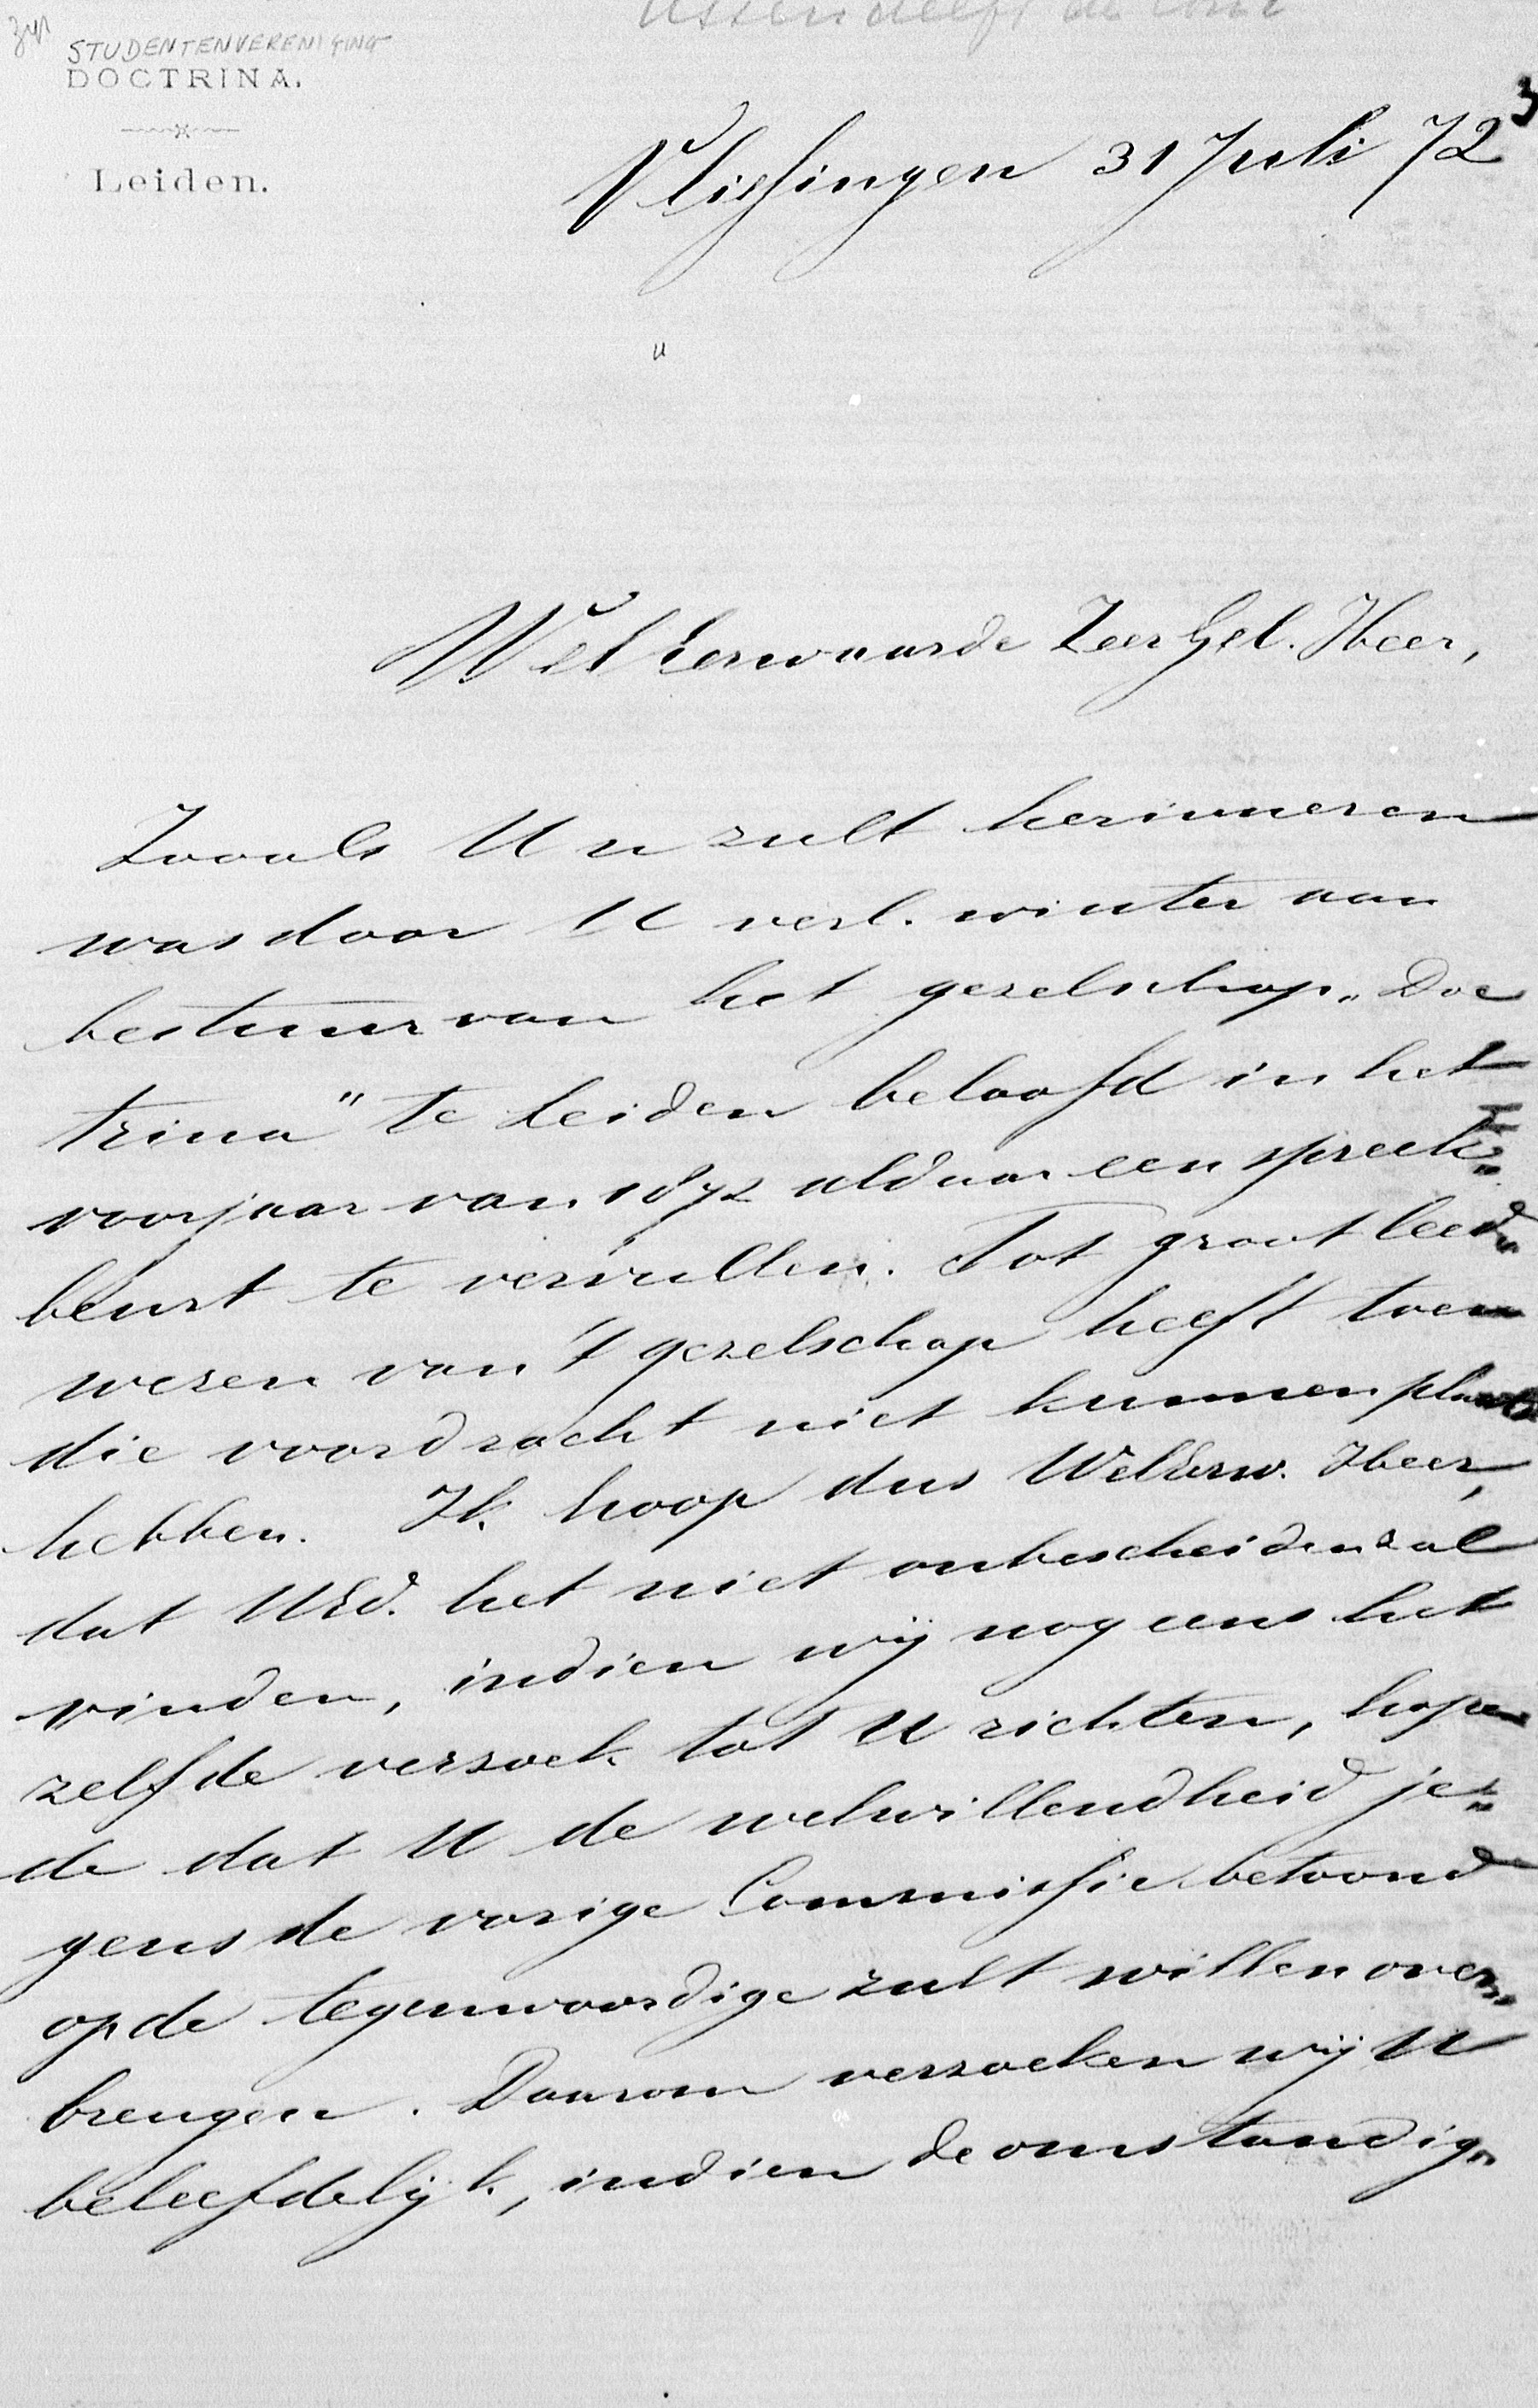 STUDENTENVERENIGING
DOCTRINA.
Leiden.
Vlissingen 31 Juli 72
WelEerwaarde ZeerGel. Heer,
Zooals U u zult herinneren
was door U verl. winter aan
bestuur van het gezelschap „Doc
trina" te Leiden beloofd in het
voorjaar van 1872 aldaar een spreek„
beurt te vervullen. Tot groot leed„
wezen van 't gezelschap heeft toen
die voordracht niet kunnen plaats
hebben. Ik hoop dus WelEerw. Heer,
dat UEd. het niet onbescheiden zal
vinden, indien wij nog eens het
zelfde verzoek tot U richten, hopen
de dat U de welwillendheid je„
gens de vorige Commissie betoond
op de tegenwoordige zult willen over„
brengen. Daarom verzoeken wij U
beleefdelijk, indien de omstandig„